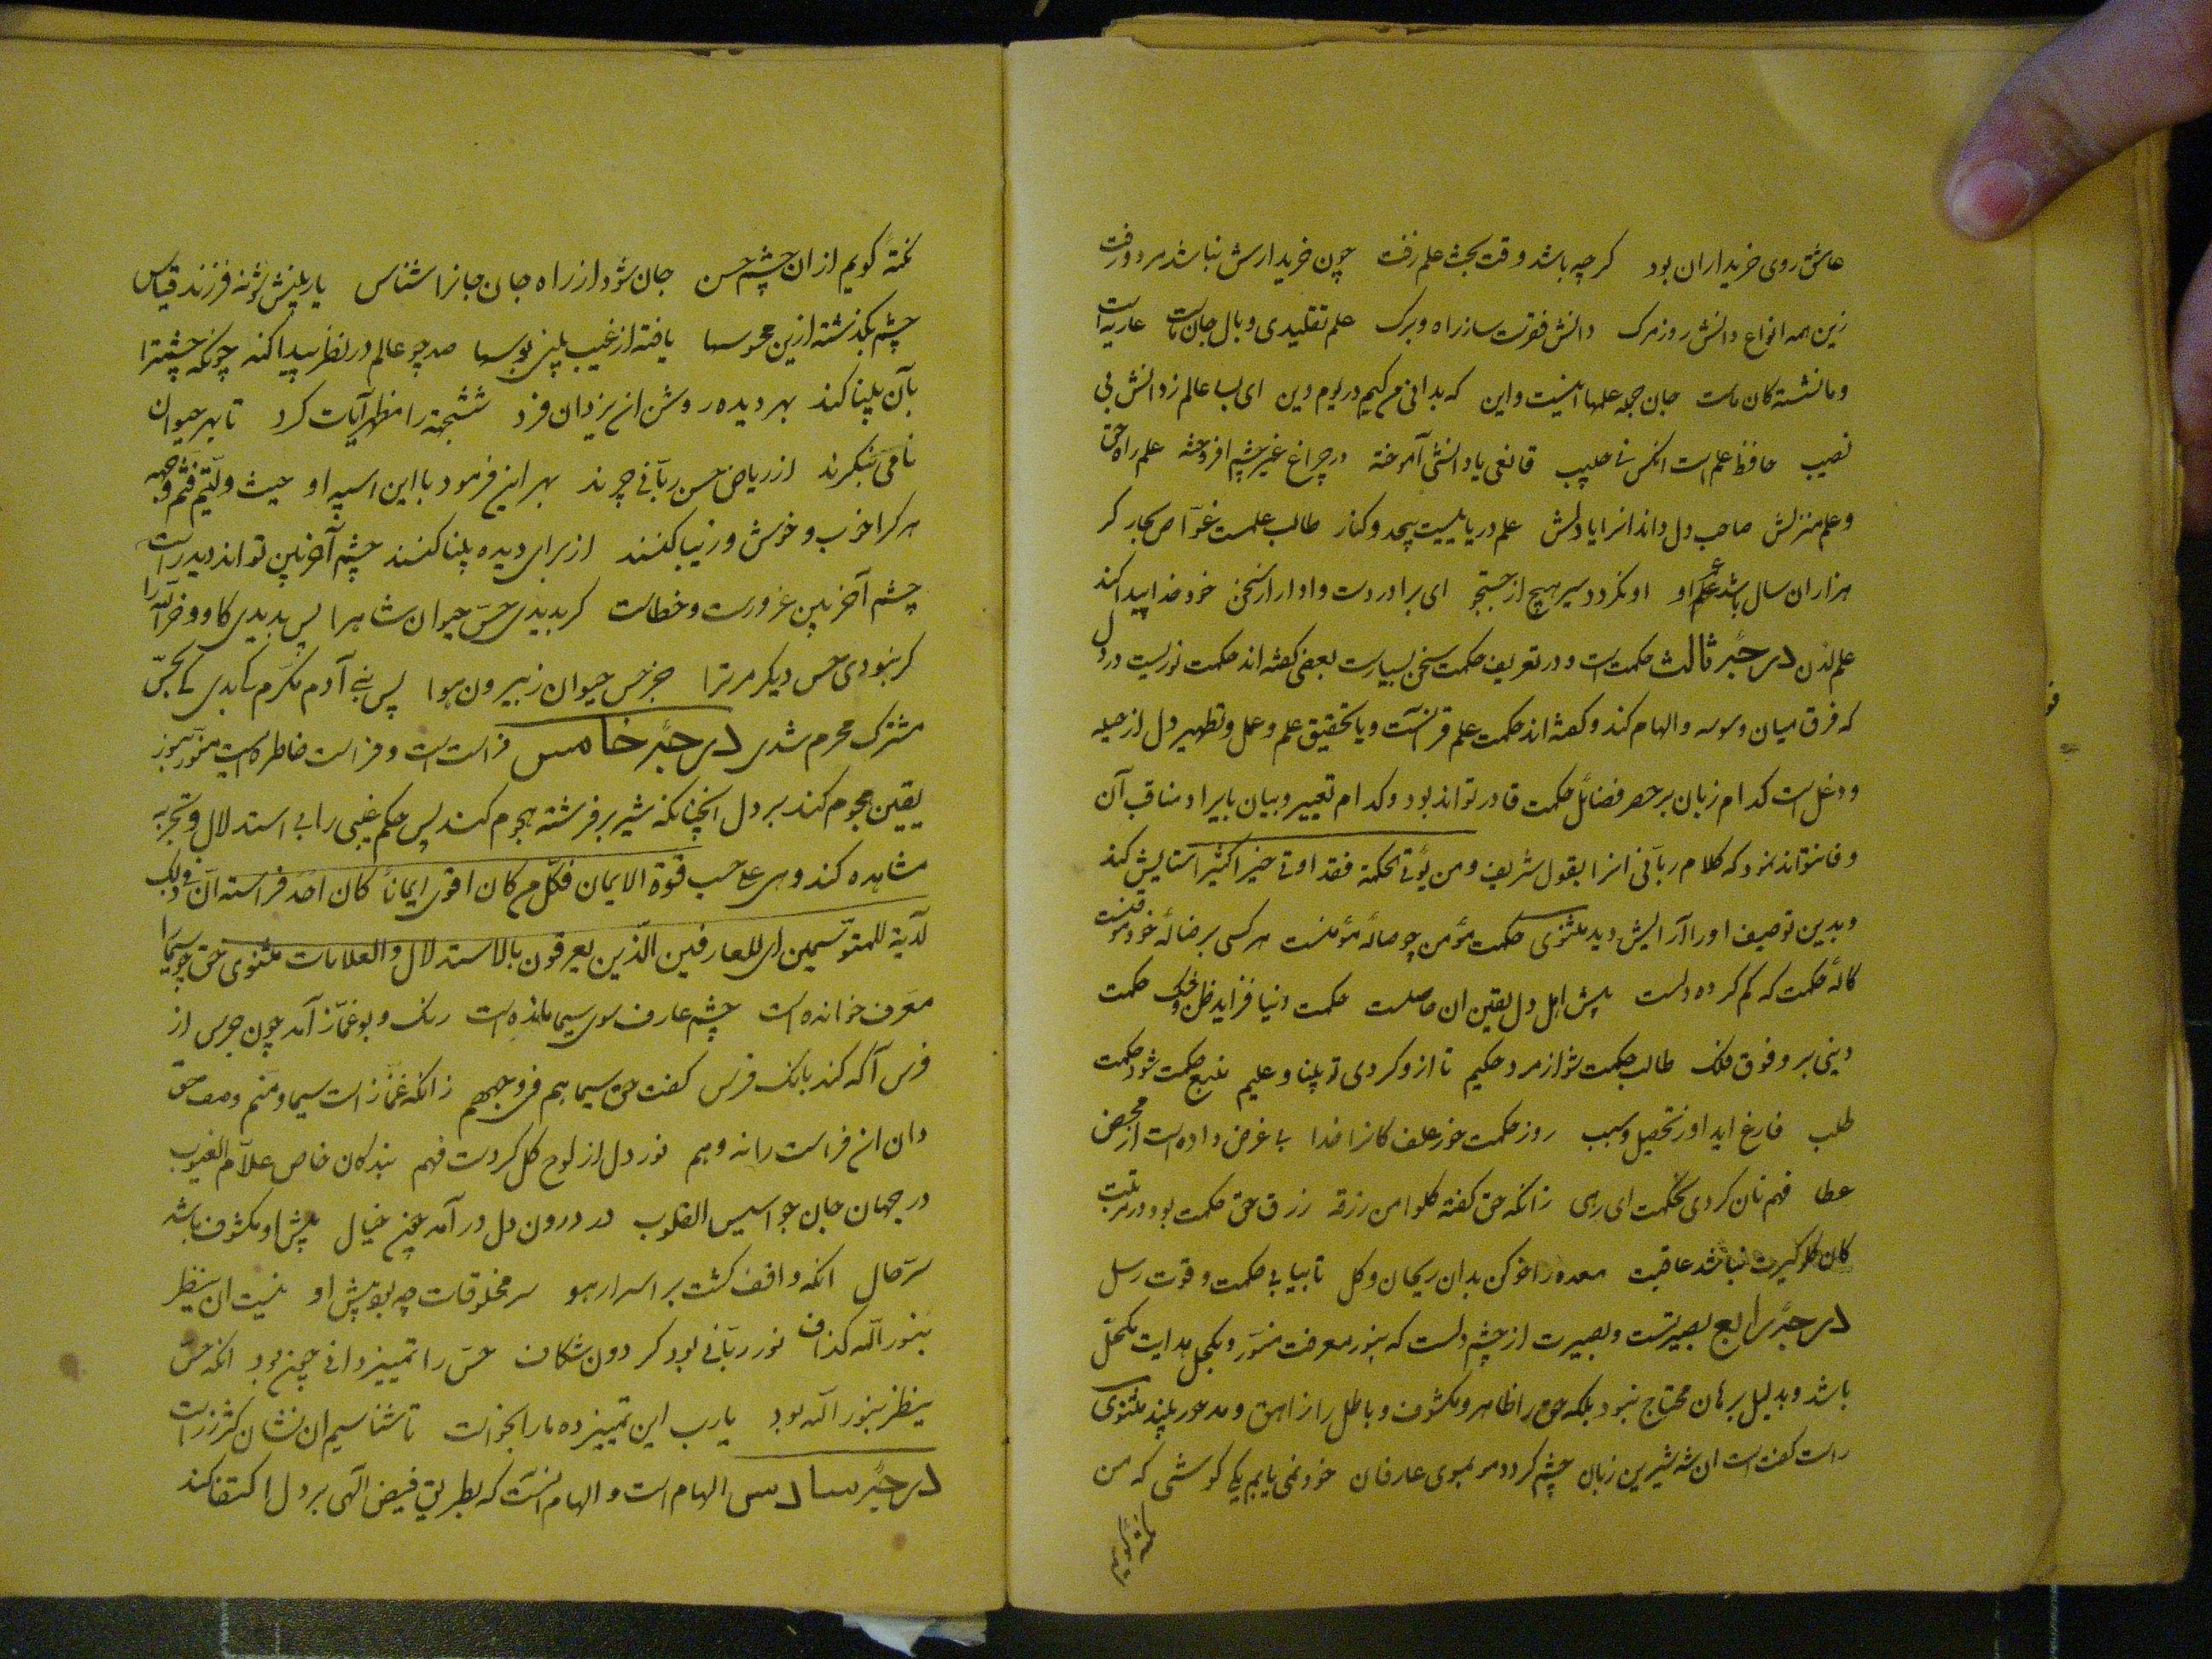 عاشق روی خریداران بود کرچه باشد وقت بحث علم زفت چون خریدارش نباشد مرد و رفت
زین همه انواع دانش روز مرک دانش فقرست ساز راه و برک علم تقلیدی وبال جان ماست عاریه است
و ما نشسته کان ماست جان جمله علمها اینست و این که بدانی من کیم در یوم دین ای بسا عالم ز دانش بی
نصیب حافظ علم است انکس نی حبیب در چراغ غیر چشم افروخته علم راه حق
و علم منزلش صاحب دل داند انرا یا دلش علم دریاییست بیحد و کنار طالب علمست غوّاص بحار کر
هزاران سال باشد عمر او او نکردد سیر هیچ از جستجو ای برادر دست وادار از سخن خود خدا پیدا کند
علم لدن درجهٔ ثالث حکمت است و در تعریف حکمت سخن بسیارست بعضی کفته اند حکمت نوریست در دل
که فرق میان وسوسه و الهام کند و کفته اند حکمت علم قرآنست و یا تحقیق علم و عمل و تطهیر دل از حیله
و دغل است کدام زبان بر حصر فضائل حکمت قادر تواند بود و کدام تعبیر و بیان بایراد مناقب آن
وفا نتواند نمود که کلام ربّانی انرا بقول شریف و من یؤتی الحکمة فقد اوتی خیرا کثیرا ستایش کند
و بدین توصیف او را آرایش دید مثنوی حکمت مؤمن چو ضالهٔ مؤمنست هر کسی بر ضالهٔ خود موقنست
کالهٔ حکمت که کم کرده دلست پیش اهل دل یقین ان حاصلست حکمت دنیا فزاید ظن و شک حکمت
دینی برد فوق فلک طالب حکمت شو از مرد حکیم تا ازو کردی تو بینا و علیم منبع حکمت شود حکمت
طلب فارغ اید او ز تحصیل و سبب روز حکمت خور علف کانرا خدا بی غرض داده است از محض
عطا فهم نان کردی نه حکمت ای رهی زانکه حق کفته کلوا من رزقه رزق حق حکمت بود در مرتبت
کان کلوکیرت نباشد عاقبت معده را خو کن بدان ریحان و کل تا بیابی حکمت و قوت رسل
درجهٔ رابع بصیرتست و بصیرت از چشم دلست که بنور معرفت منوّر و بکحل هدایت مکحّل
باشد و بدلیل برهان محتاج نبود بلکه حق را ظاهر و مکشوف و باطل را زاهق و مدحور بیند مثنوی
راست کفت است ان شه شیرین زبان چشم کردد مو بموی عارفان خود نمی یابم یکی کوشی که من
نکتهٔ کویم از ان چشم حسن جان شو و از راه جان جانرا شناس یار بینش شو نه فرزند قیاس
چشم بکذشته ازین محسوسها یافته از غیب بینی بوسها صد چو عالم در نظر پیدا کند چونکه چشمترا
بآن بینا کند بهر دیده روشنان یزدان فرد شش جهة را مظهر آیات کرد تا بهر حیوان
نامی بنکرند از ریاض حسن ربّانی چرند بهر این فرمود با این اسپه او حیث ولّیتم فثم وجهه
هر کرا خوب و خوش و زیبا کنند از برای دیده بینا کنند چشم آخر بین تواند دید راست
چشم آخر بین غرورست و خطاست کر بدیدی حسّ حیوان شاه را پس بدیدی کاو و خر الله را
کر نبودی حس دیکر مر ترا جز حس حیوان ز بیرون هوا پس بنی آدم مکرّم کی بدی کی بحسّ
مشترک محرم شدی درجهٔ خامس فراست است و فراست خاطره ایست منوّر بنور
یقین هجوم کند بر دل انچنانکه شیر بر فرشته هجوم کند پس حکم غیبی را بی استدلال و تجربه
مشاهده کند و هی علی حسب قوة الایمان فکل من کان اقوی ایماناً کان احدّ فراسته انّ فی ذلک
لآیة للمتوسمین ای للعارفین الّذین یعرفون بالاستدلال و العلامات مثنوی حق چو سیما را
معرّف خوانده است چشم عارف سوی سیما مانده است رنک و بو غمّاز آمد چون جرس از
فرس آکه کند بانک فرس کفت حق سیماهم فی وجههم زانکه غمّاز است سیما و منم وصف حق
دان ان فراست را نه وهم نور دل از لوح کل کردست فهم بندکان خاص علاّم الغیوب
در جهان جان جواسیس القلوب در درون دل در آمد چون خیال پیش او مکشوف باشد
سرّ حال انکه واقف کشت بر اسرار هو سر مخلوقات چه بود پیش او نیست ان ینظر
بنور اللّه کذاف نور ربّانی بود کردون شکاف حسّ را تمییز دانی چون بود انکه حسّ
ینظر بنور اللّه بود یا رب این تمییز ده ما را بخواست تا شناسیم ان نشان کژ ز راست
درجهٔ سادس الهام است و الهام انست که بطریق فیض الهی بر دل اکتفا کند